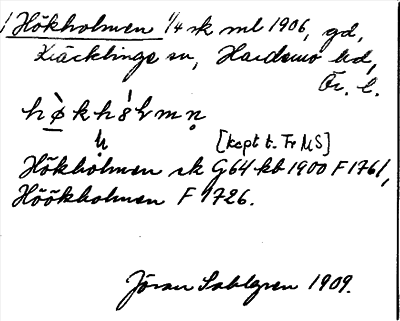 Hökholmen 1/4 sk ml 1906, gd,
Kräcklinge sn, Hardemo hd,
Ör. l.
[kopt t. Fr MS]
Hökholmen sk G64 kb 1900 F 1761,
Höökholmen F 1726.
Jöran Sahlgren 1909.